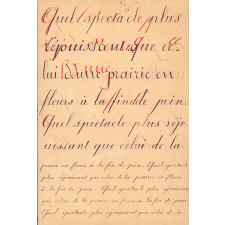 Quel spectacle plus
réjouissant que ce-
lui d'une prairie en
fleurs à la fin de juin.
Quel spectacle plus réjo-
uissant que celui de la
prairie en fleurs à la fin de juin. Quel spectacle
plus réjouissant que celui de la prairie en fleurs
à la fin de juin. Quel spectacle plus réjouissant
que celui de la prairie en fleurs à la fin de juin.
Quel spectacle plus réjouissant que celui de la